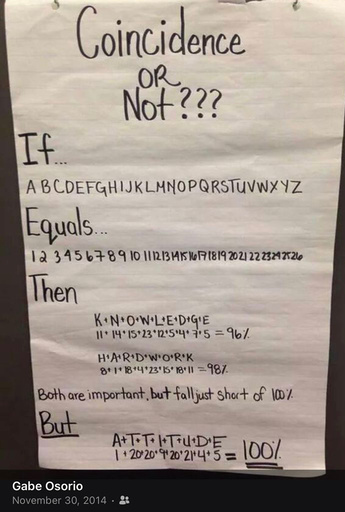 Coincidence
OR
Not???
If...
A B C D E F G H I J K L M N O P Q R S T U V W X Y Z
Equals...
1 2 3 4 5 6 7 8 9 10 11 12 13 14 15 16 17 18 19 20 21 22 23 24 25 26
Then
K+N+O+W+L+E+D+G+E
11+14+15+23+12+5+4+7+5=96%
H+A+R+D+W+O+R+K
8+1+18+4+23+15+18+11=98%
Both are important, but fall just short of 100%
But
A+T+T+I+T+U+D+E
1+20+20+9+20+21+4+5= 100%
Gabe Osorio
November 30, 2014 ·